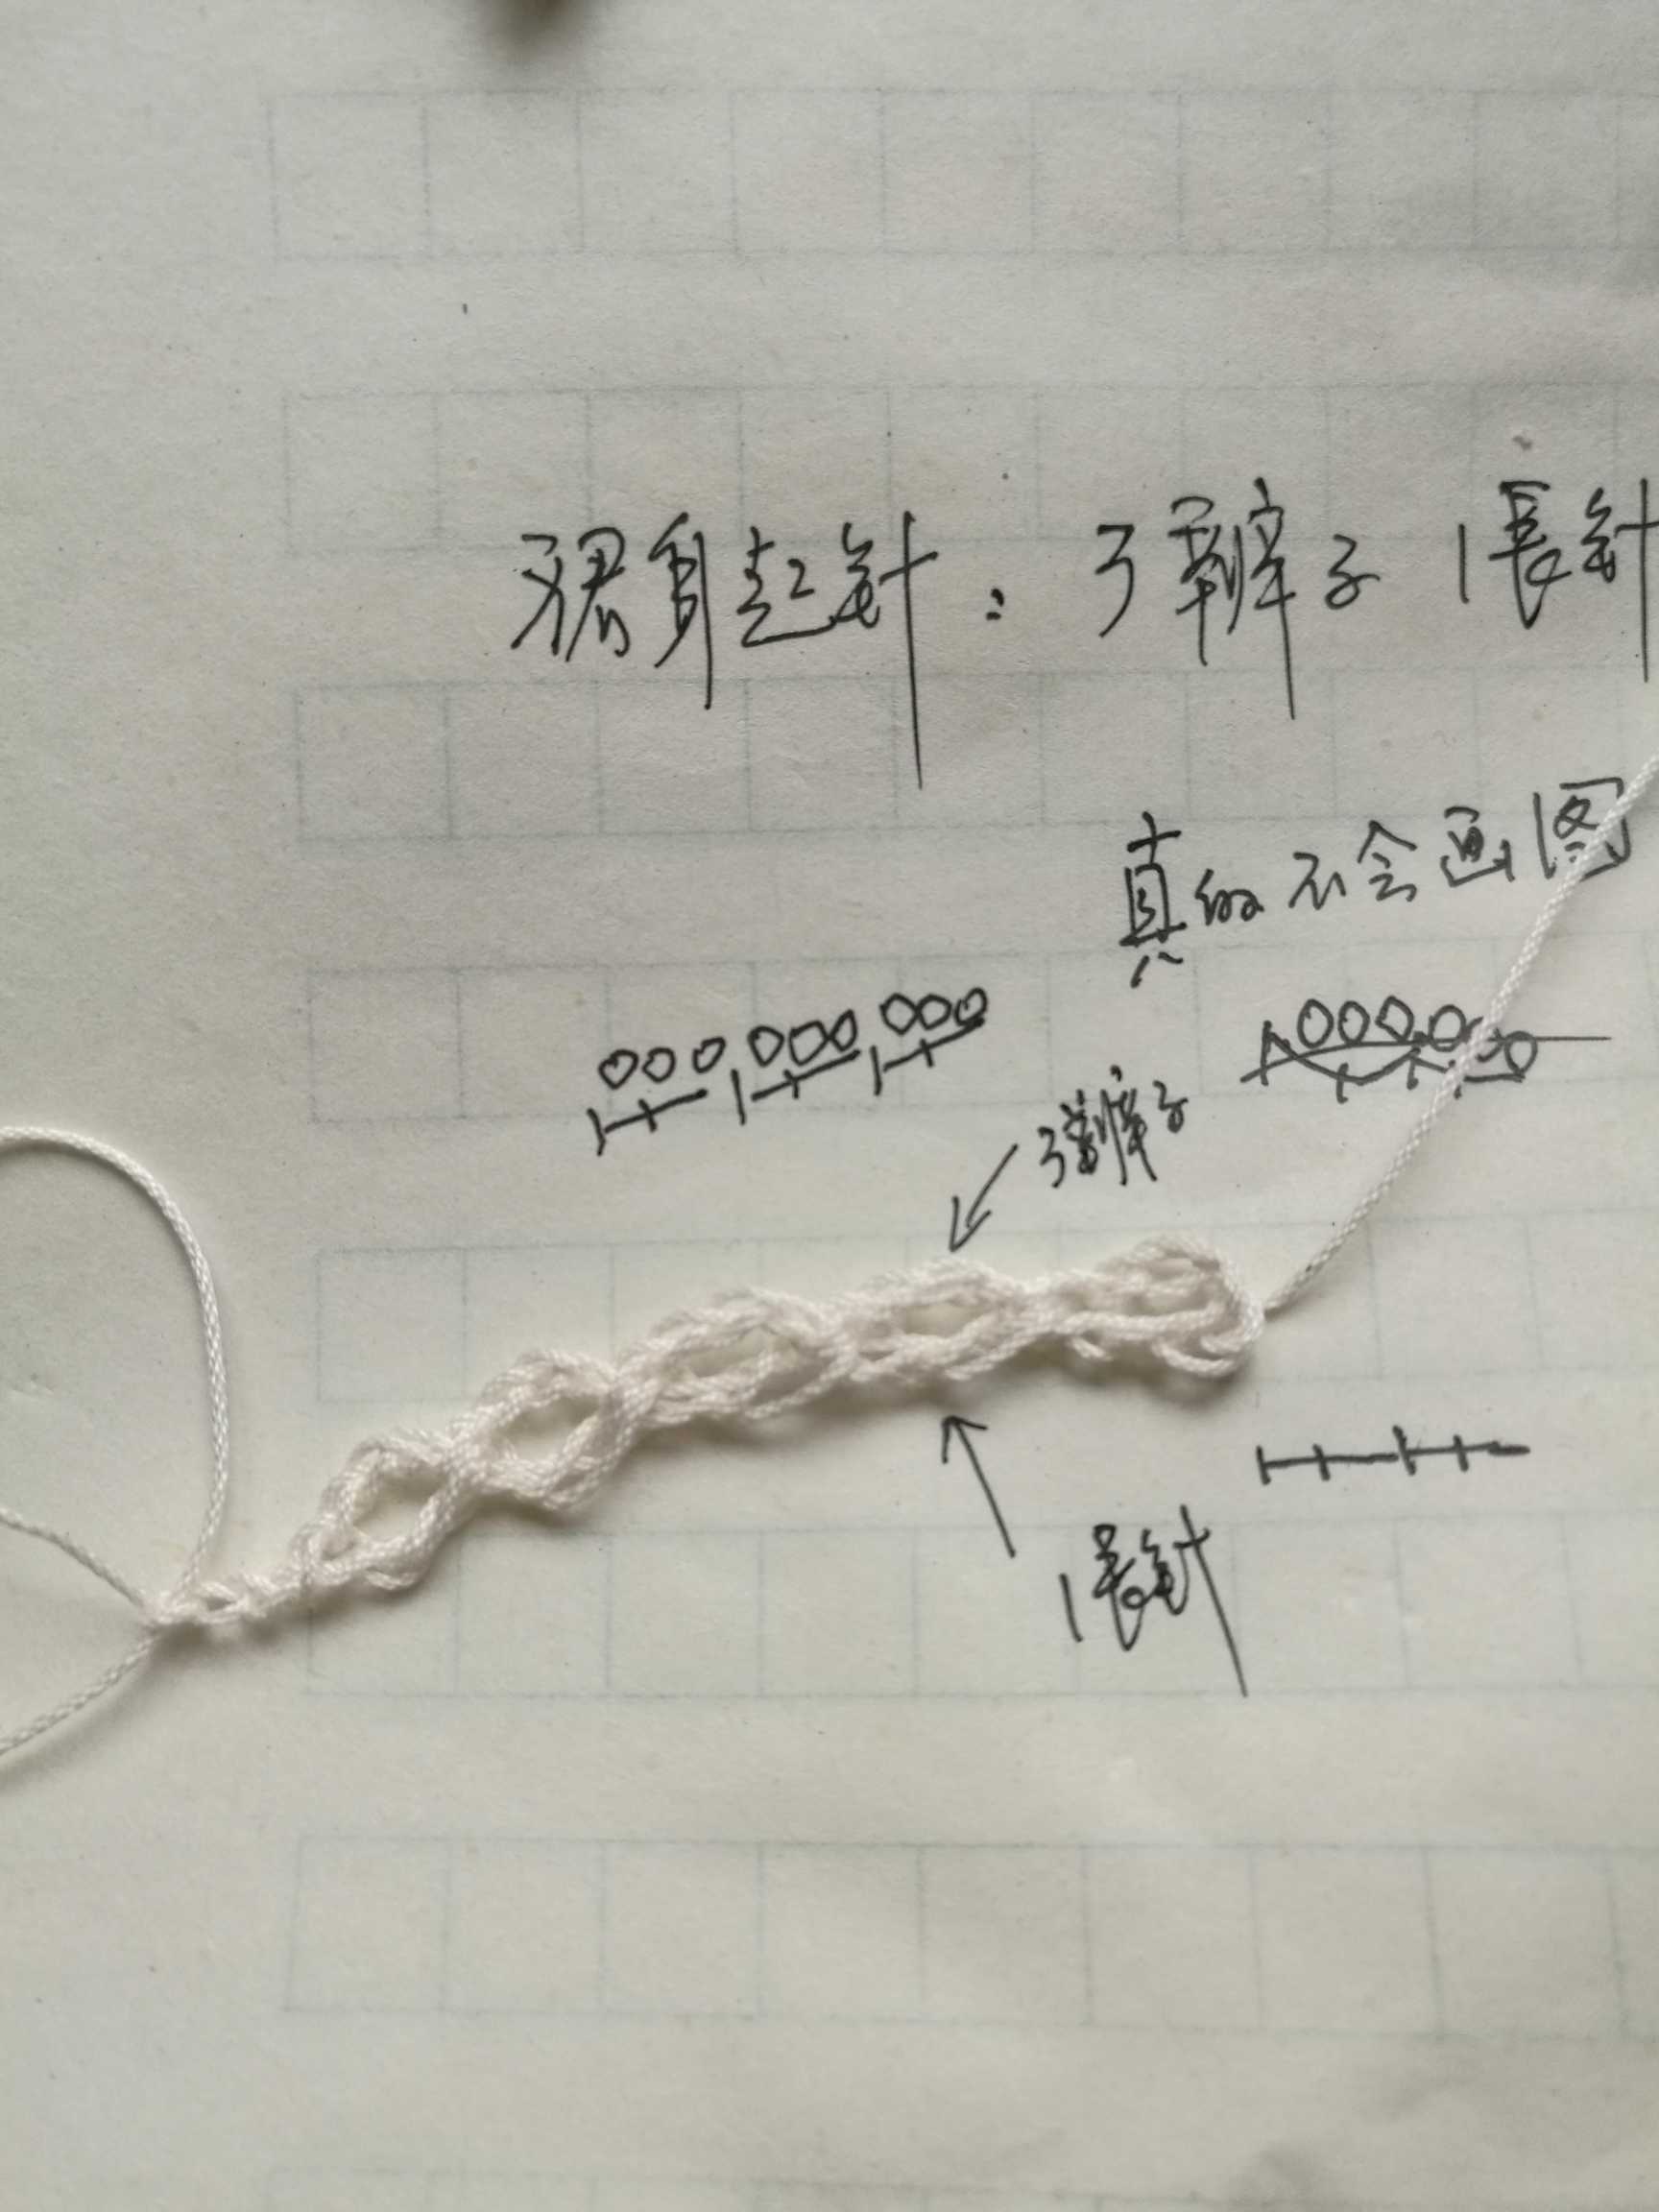 裙身起針：3辮子 1長針
真的不会画图
3辮子
1長針